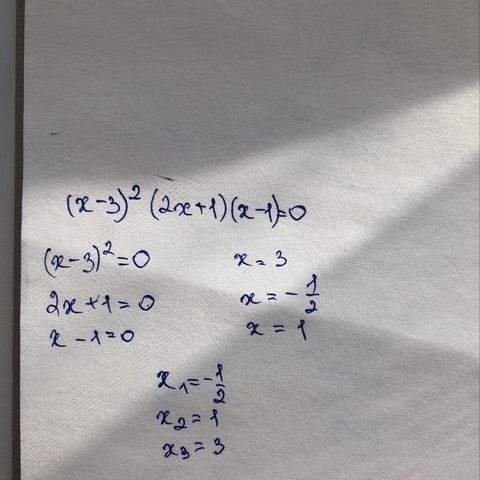 (x-3)² (2x+1)(x-1)=0
(x-3)²=0 x=3
2x+1=0 x=-1/2
x-1=0 x=1
x₁=-1/2
x₂=1
x₃=3